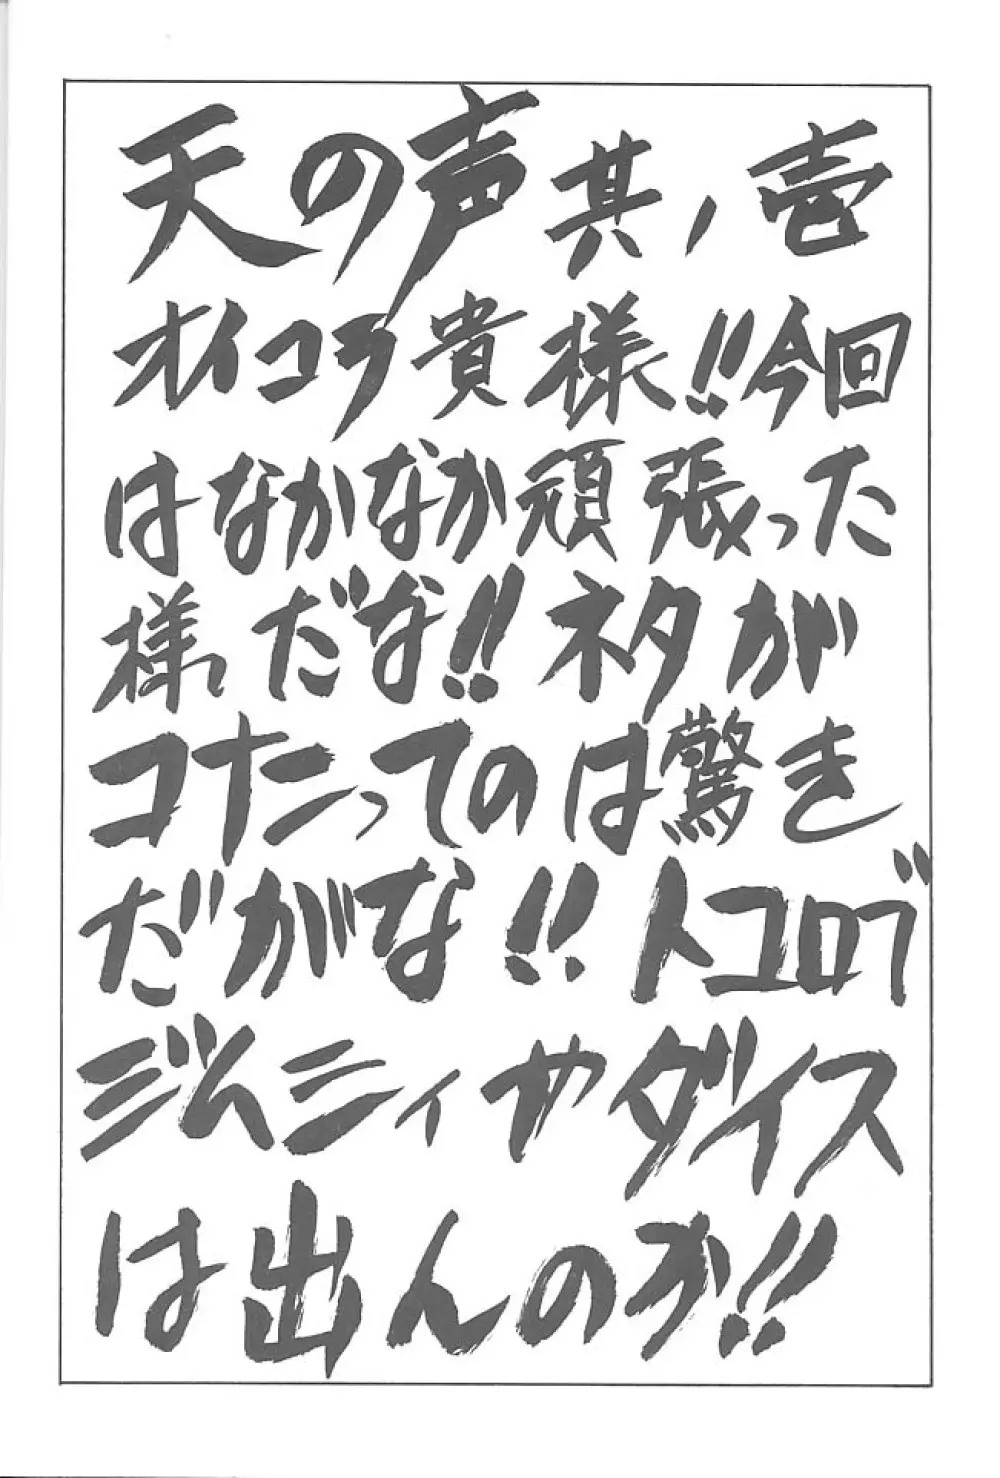 天の声其ノ壱
オイコラ貴様!!今回
はなかなか頑張った
様だな!!ネタが
コナンってのは驚き
だがな!!トコロで
ジムニィやダイス
は出んのか!!